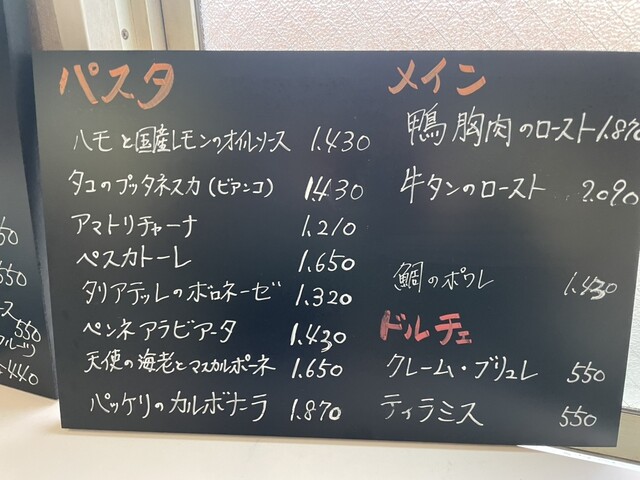 パスタ
ハモと国産レモンのオイルソース 1.430
タコのプッタネスカ(ビアンコ) 1.430
アマトリチャーナ 1.210
ペスカトーレ 1.650
タリアテッレのボロネーゼ 1.320
ペンネアラビアータ 1.430
天使の海老とマスカルポーネ 1.650
パッケリのカルボナーラ 1.870
メイン
鴨胸肉のロースト 1.870
牛タンのロースト 2.090
鯛のポワレ 1.430
ドルチェ
クレーム・ブリュレ 550
ティラミス 550
550
550
440